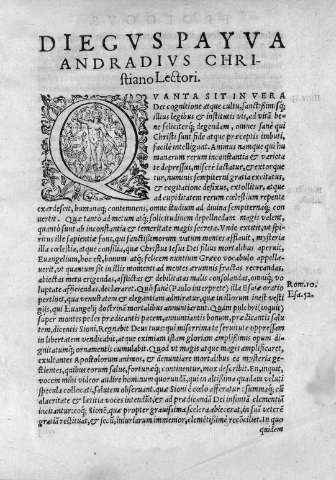 DIEGVS PAYVA
ANDRADIVS CHRI-
stiano Lectori.
QVANTA SIT IN VERA
Dei cognitione atque cultu, sanctissimisq́;
illius legibus & institutis vis, ad vitã be-
ne feliciterq́; degendam, omnes sanè qui
Christi sunt fide atque præceptis imbuti,
facilè intelligunt. Animus nanque qui hu
manarum rerum inconstantia & varieta
te depressus, miserè iactatur, & extorque
tur, numinis sempiterni gratia excitatus,
& cogitatione defixus, extollitur, atque
ad cupiditatem rerum cœlestium repente
exardescit, humanaq́; contemnens, omne studium ad diuina sempiternaq́; con
uertit. Quæ tanto ad metum atq́; solicitudinem depellendam magis valent,
quanto sunt ab inconstantia & temeritate magis secreta. Vnde extitit, vt spi-
ritus ille sapientiæ fons, qui sanctissimorum vatum mentes afflauit, mysteria
illa cœlestia, atque consilia, quæ Christus Iesus Dei filius mortalibus aperuit,
Euangelium, hoc est, bonum atq́; felicem nuntium Græco vocabulo appella-
uerit, vt quantum sit in illis momenti ad mentes ærumnis fractas recreandas,
abiectas metu erigendas, afflictas & debilitatas malis consolandas, omniq́; vo
luptate afficiendas declararet. Quò sanè (Paulo interprete) illa Esaiæ oratio
pertinet, qua venustatem & elegantiam admiratur, quæ in illorum inest vesti
gijs, qui Euangelij doctrinã mortalibus annuntiaturi. Quàm pulchri, inquit,
super montes pedes annuntiantis pacem, annuntiantis bonum, prædicantis salu
tem, dicentis Sion, Regnabit Deus tuus: qui miserrima te seruitute oppressam
in libertatem vendicabit, atque eximiam istam gloriam amplissimis opum di-
gnitatumq́; ornamentis cumulabit. Quod vt magis atque magis amplificaret,
exultantes Apostolorum animos, & denuntiare mortalibus ea mysteria ge-
stientes, quibus eorum salus, fortunæq́; continentur, mox describit. En, inquit,
vocem mini videor audire hominum quorundã, qui in altissima quadam veluti
specula collocati, salutem obseruant, quæ Sioni è cœlo afferatur: summaq́; cũ
alacritate & lætitia voces intendũt, & ad prædicandã Dei infinitã clementiã
incitantur: eoq́; Sionẽ, quæ propter grauissima scelera ablecerat, in suã veterẽ
gratiã restituat, & secũ, iniuriarum immemor, clementissimè recõciliet. In quo
quidem
Rom. 10.
Esa. 52.